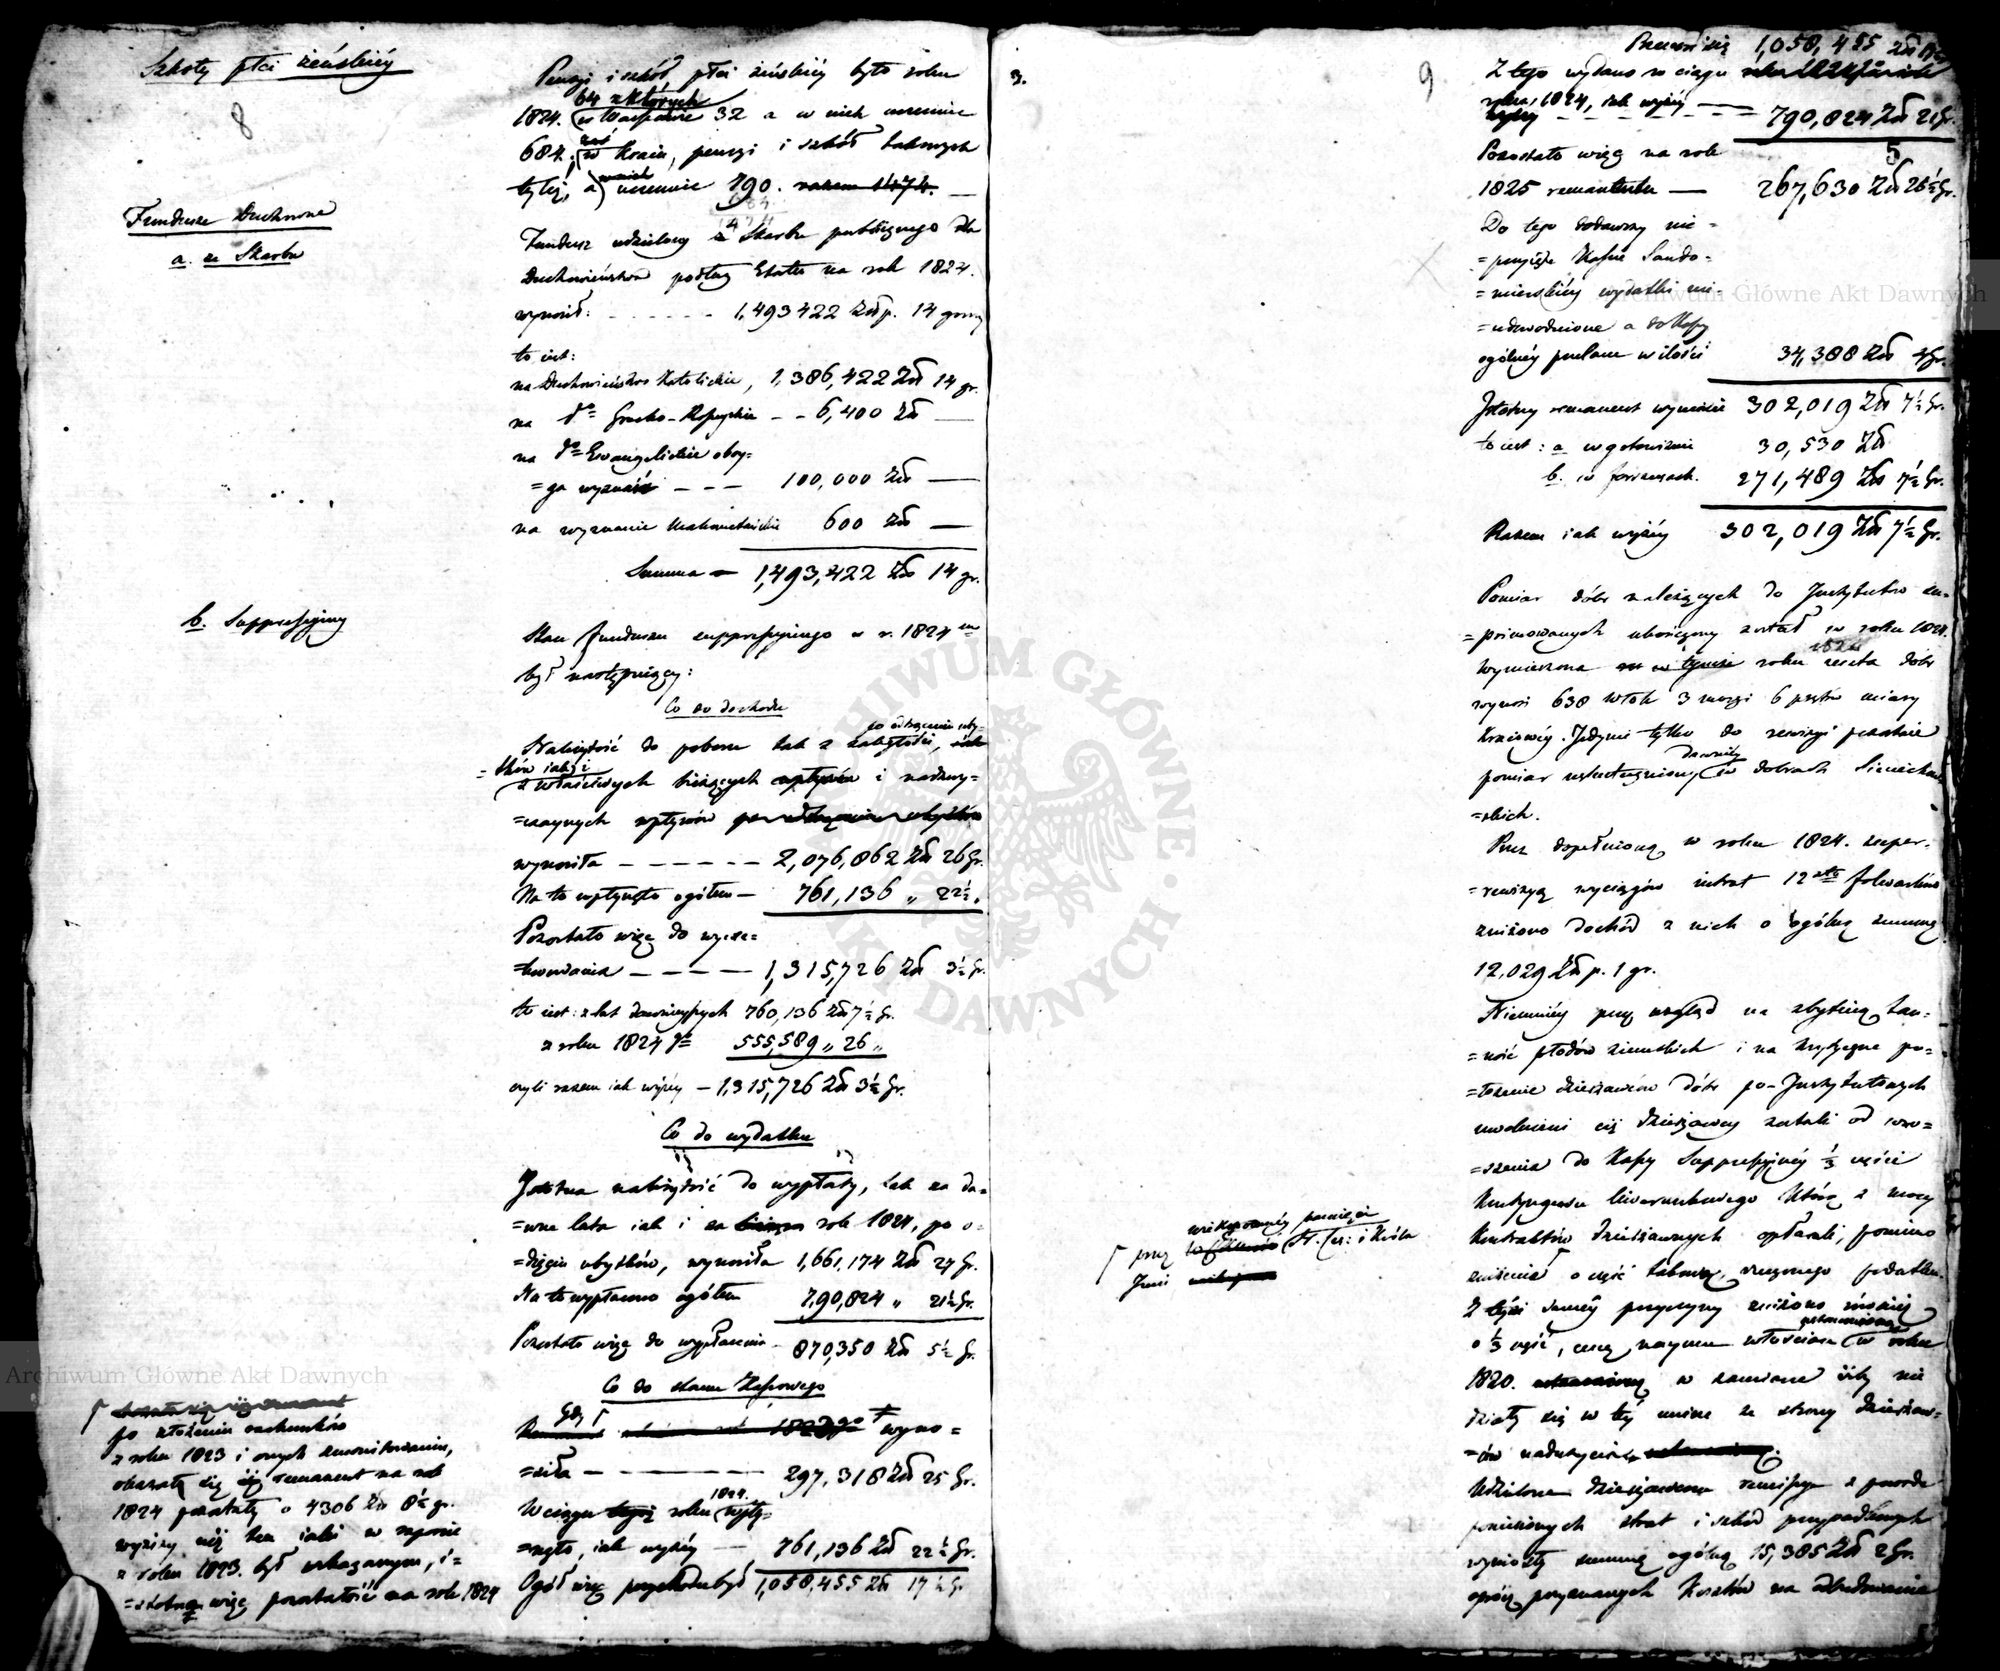 Szkoły płci żeńskiéy
8
Pensyi i szkół płci żeńskiéy było roku
64 z których
1824. w Warszawie 32 a w nich uczennic
684. zaś w Kraiu, pensyi i szkół takowych
tyleż, a w nich uczennic 790. razem 1474.
684
1474
Fundusze Duchowne
a. ze Skarbu
Fundusz udzielony z Skarbu publicznego dla
Duchowieństwa podług Etatu na rok 1824.
wynosił: - - - - - - 1,493422 Złp. 14 groszy
to iest:
na Duchowieństwo Katolickie, 1,386,422 Zł 14 gr.
na do Grecko-Rossyiskie - - 6,400 Zł —
na do Ewangelickie oboy=
=ga wyznań - - - 100,000 Zł —
na wyznanie Mahometańskie 600 Zł —
Summa — 1,493,422 Zł 14 gr.
b. Suppressyiny
Stan funduszu suppressyinego w r. 1824m
był następuiący:
Co do dochodu
po odtrąceniu uby=
Należytość do poboru tak z zaległości,
=tków iako i
z właściwych bieżących wpływów i nadzwy=
=czaynych wpływów po odtrąceniu ubytków
wynosiła - - - - - - 2,076,862 Zł 26 Gr.
Na to wpłynęło ogółem — 761,136 „ 22½ „
Pozostało więc do wyexe=
=kwowania - - - - 1,315,726 Zł 3½ Gr.
to iest: z lat dawnieyszych 760,136 Zł 7½ Gr.
z roku 1824go 555,589 „ 26 „
czyli razem iak wyżéy — 1,315,726 Zł 3½ Gr.
Co do wydatku
Istotna należytość do wypłaty, tak za da=
=wne lata iak i za bieżący rok 1824, po o=
=dięciu ubytków, wynosiła 1,661,174 Zł 27 Gr.
Na to wypłacono ogółem 790,824 „ 21½ Gr.
Pozostało więc do wypłacenia - 870,350 Zł 5½ Gr.
Co do stanu Kassowego
Gdy
Remanent 1823go wyno=
=siła - - - - - - 297,318 Zł 25 Gr.
W ciągu tegoż roku 1824. wpły=
=nęło, iak wyżéy — 761,136 Zł 22½ Gr.
Ogół więc przychodu był 1,058,455 Zł 17½ Gr.
po złożeniu rachunków
z roku 1823 i onych zmonitowaniu,
okazała się iż remanent na rok
1824 pozostały o 4306 Zł 8½ gr.
wyższy niż ten iaki w raporcie
z roku 1823. był wskazanym, i=
=stotna więc pozostałość na rok 1824
3.
9
Przenosi się 1,058,455 Zł
Z tego wydano w ciągu
roku 1824, iak wyżéy — 790,824 Zł 21 Gr.
Pozostało więc na rok 5
1825 remanentu — 267,630 Zł 26½ Gr.
Do tego dodawszy nie=
=przyięte Kassie Sando=
=mierskiéy wydatki nie=
=udowodnione a do Kassy
ogólnéy przelane w ilości 34,388 Zł Gr.
Istotny remanent wyniesie 302,019 Zł 7½ Gr.
to iest: a w gotowiźnie 30,530 Zł
b. w forszusach. 271,489 Zł 7½ Gr.
Razem iak wyżéy 302,019 Zł 7½ Gr.
Pomiar dóbr należących do Instytutów su=
=primowanych ukończony został w roku 1824.
1824
Wymierzona w tymże roku reszta dóbr
wynosi 638 Włók 3 morgi 6 prętów miary
Kraiowéy. Jedynie tylko do rewizyi pozostaie
dawniéy
pomiar uskuteczniony w dobrach Sieciechow=
=skich.
Przez dopełnioną w roku 1824. super=
=rewizyą wyciągów intrat 12stu folwarków
zniżono dochód z nich o ogólną summę
12,029 Złp. 1 gr.
Niemniéy przez wzgląd na zbytnią tan=
=ność płodów ziemskich i na krytyczne po=
=łożenie dzierżawców dóbr po-Instytutowych
uwolnieni ciż dzierżawcy zostali od wno=
=szenia do Kassy Suppressyinéy ⅓ części
Kontyngensu liwerunkowego Którą z mocy
Kontraktów dzierżawnych opłacali, pomimo
zniżenia o część takową, rzeczonego podatku.
przez wiekopomnéy pamięci
N. Ces: i Króla
Z téy saméy przyczyny zniżono również
postanowioną
o ⅓ część, cenę naymu włościan w roku
1820. w zamiarze iżby nie
działy się w téy mierze ze strony dzierżaw=
=ców nadużycia.
Udzielona dzierżawcom remissya z powodu
poniesionych strat i szkód przypadkowych
wyniosła summę ogólną 15,385 Zł 2 Gr.
oprócz przyznanych Kosztów na odbudowanie
Archiwum Główne Akt Dawnych
Archiwum Główne Akt Dawnych
ARCHIWUM GŁÓWNE AKT DAWNYCH